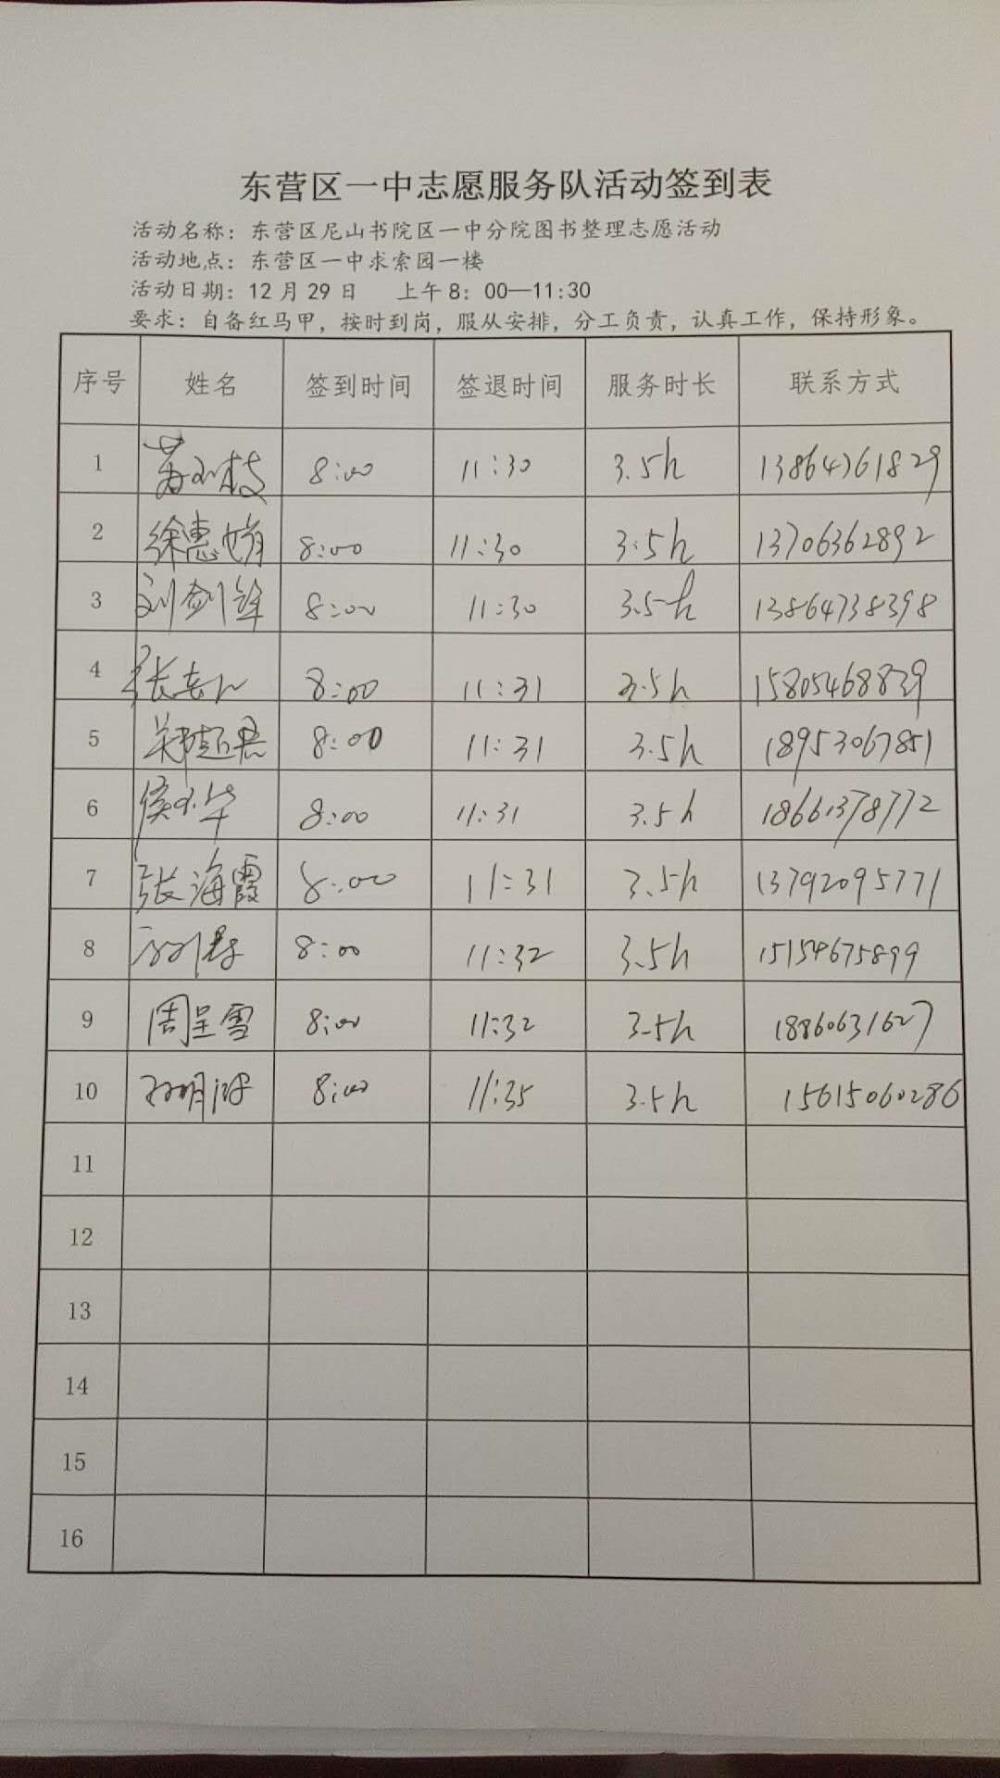 东营区一中志愿服务队活动签到表
活动名称：东营区尼山书院区一中分院图书整理志愿活动
活动地点：东营区一中求索园一楼
活动日期：12月29日 上午8：00—11:30
要求：自备红马甲，按时到岗，服从安排，分工负责，认真工作，保持形象。
序号 姓名 签到时间 签退时间 服务时长 联系方式
1 8:00 11:30 3.5h 13864761829
2 徐惠娟 8:00 11:30 3.5h 13706362892
3 刘剑锋 8:00 11:30 3.5h 13864738398
4 8:00 11:31 3.5h 15805468839
5 郑超君 8:00 11:31 3.5h 18953067851
6 侯小华 8:00 11:31 3.5h 18661378772
7 张海霞 8:00 11:31 3.5h 13792095771
8 8:00 11:32 3.5h 15154675899
9 周呈雪 8:00 11:32 3.5h 18860631627
10 8:00 11:35 3.5h 15615060286
11
12
13
14
15
16